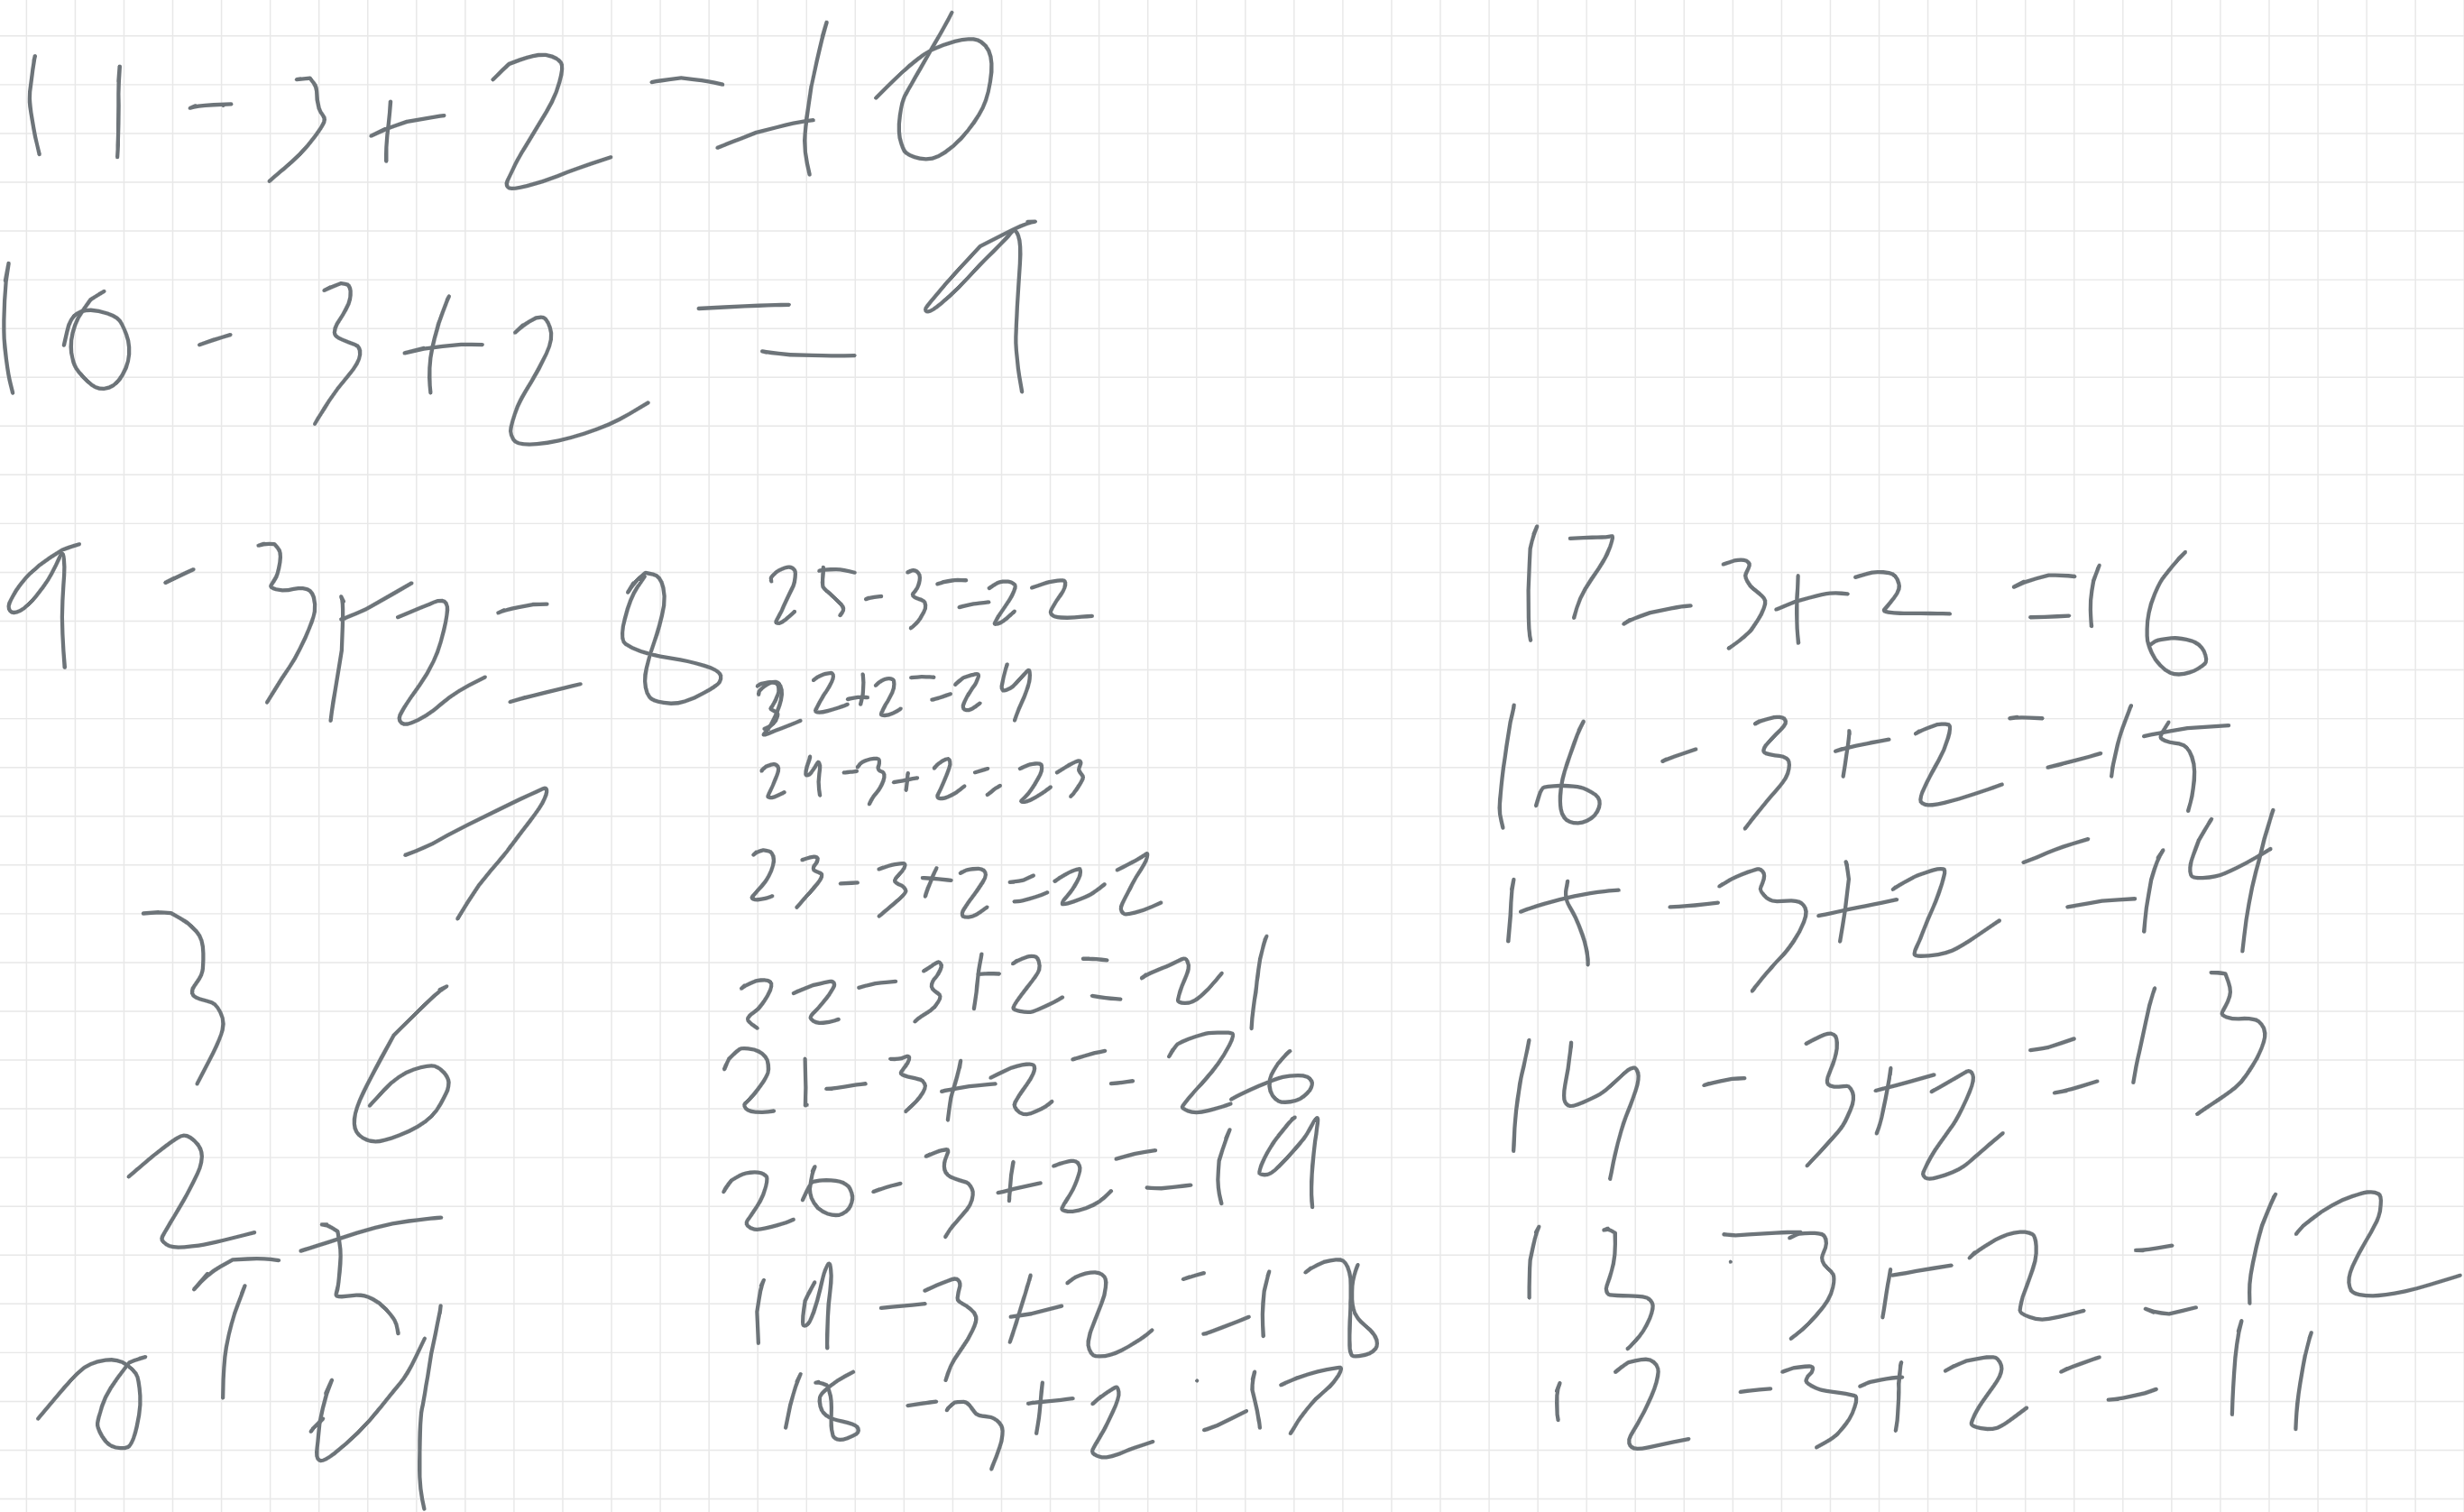 11-3+2=10
10-3+2=9
9-3+2=8
7
3
6
2
5
1
0
4
25-3=22
22+2=24
24-3+2=23
23-3+2=22
22-3+2=21
21-3+2=20
20-3+2=19
19-3+2=18
18-3+2=17
17-3+2=16
16-3+2=15
15-3+2=14
14-3+2=13
13-3+2=12
12-3+2=11